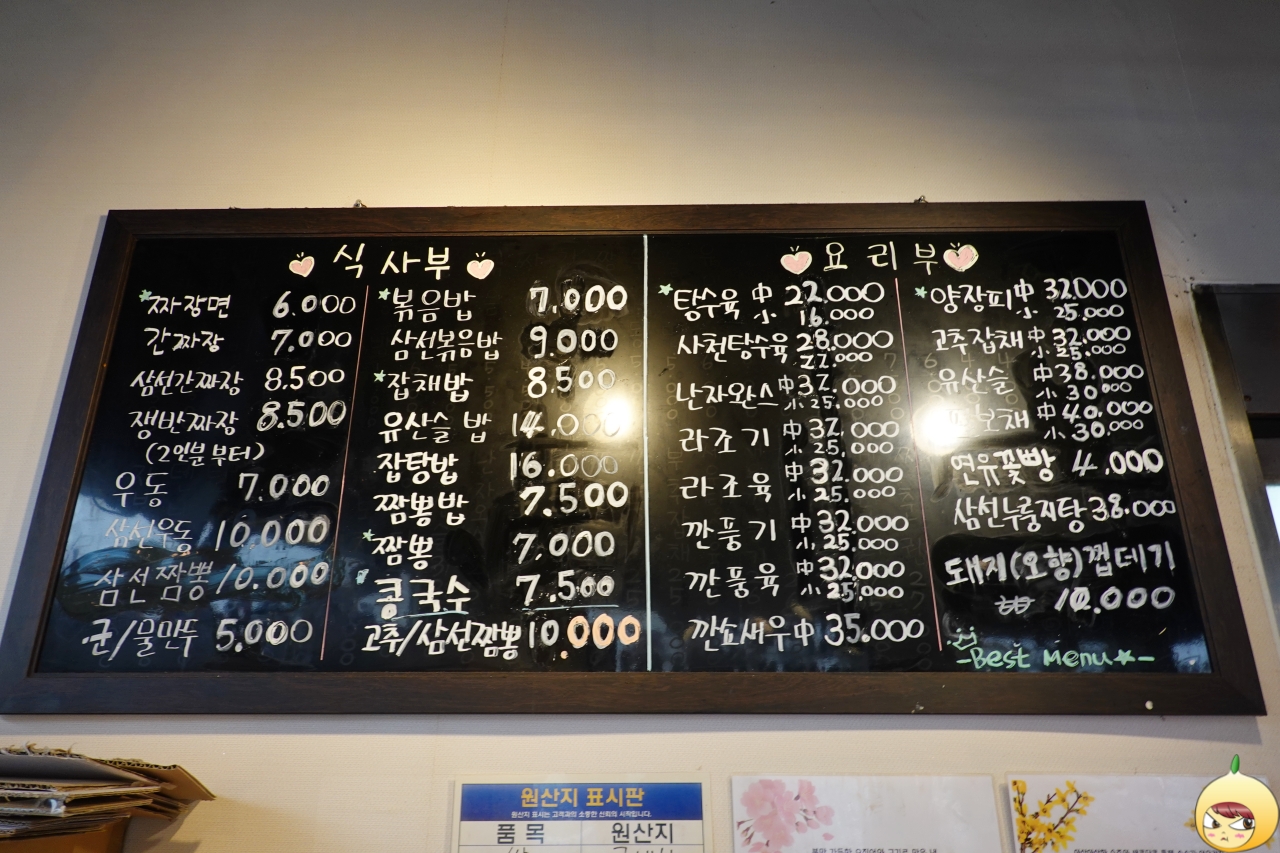 식사부
*짜장면 6.000
간짜장 7.000
삼선간짜장 8.500
쟁반짜장 8.500
(2인분부터)
우동 7.000
삼선우동 10,000
삼선짬뽕 10.000
군/물만두 5.000
*볶음밥 7,000
삼선볶음밥 9.000
*잡채밥 8.500
유산슬밥 14.000
잡탕밥 16.000
짬뽕밥 7.500
*짬뽕 7,000
콩국수 7.500
고추/삼선짬뽕 10,000
요리부
*탕수육 中 22.000
小 16.000
사천탕수육 28.000
22.000
난자완스 中 32.000
小 25.000
라조기 中 32.000
小 25,000
라조육 中 32.000
小 25.000
깐풍기 中 32.000
小 25.000
깐풍육 中 32.000
小 25,000
깐쇼새우 中 35.000
*양장피 中 32.000
小 25.000
고추잡채 中 32.000
小 25.000
유산슬 中 38.000
小 30.000
보채 中 40.000
小 30.000
연유꽃빵 4.000
삼선누룽지탕 38.000
돼지(오향)껍데기
10.000
-Best Menu★-
원산지 표시판
원산지 표시는 고객과의 소중한 신뢰의 시작입니다.
품목 원산지